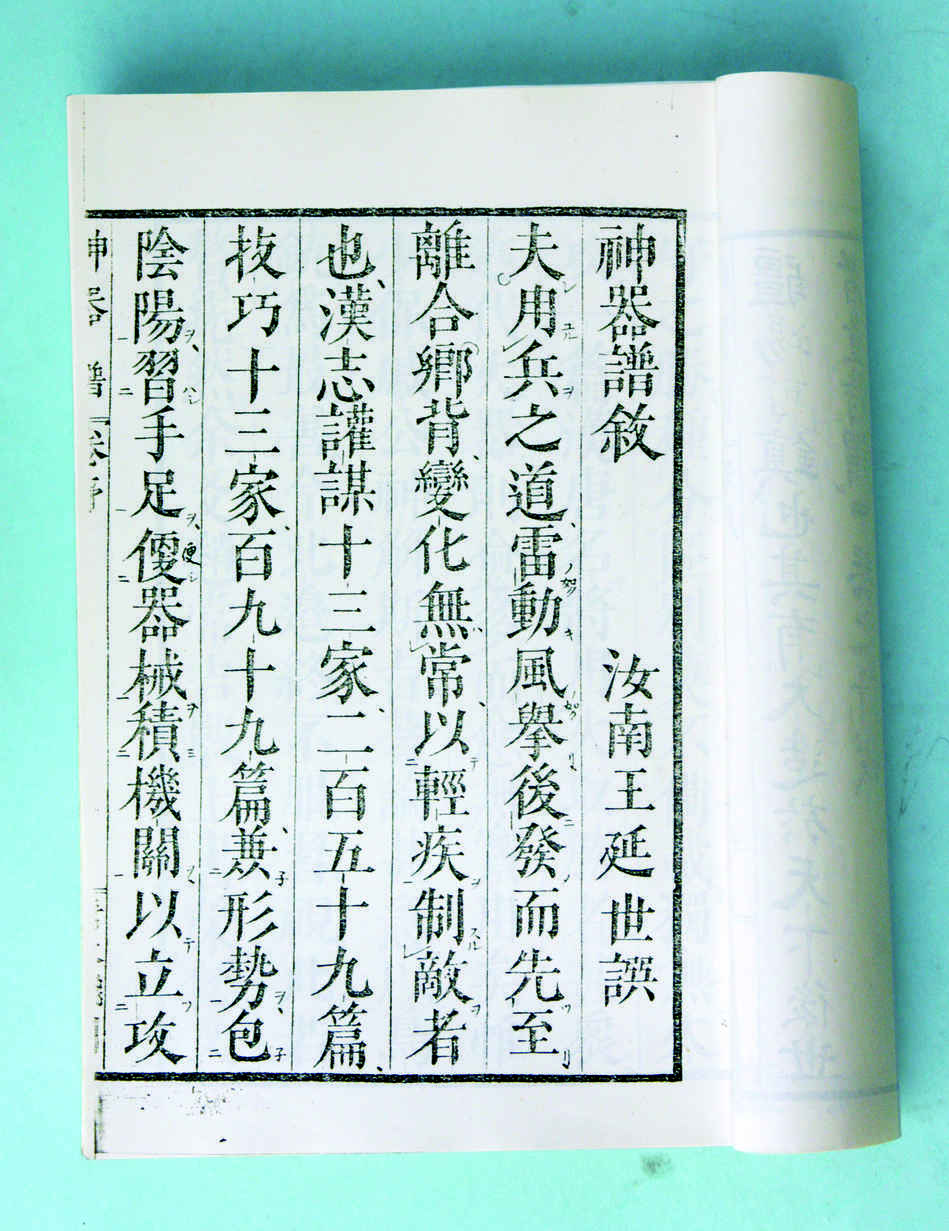 神器譜敘
汝南王延世譔
夫用兵之道雷動風舉後發而先至
離合鄉背變化無常以輕疾制敵者
也漢志權謀十三家二百五十九篇
技巧十三家百九十九篇兼形勢包
陰陽習手足便器械積機關以立攻
神器譜